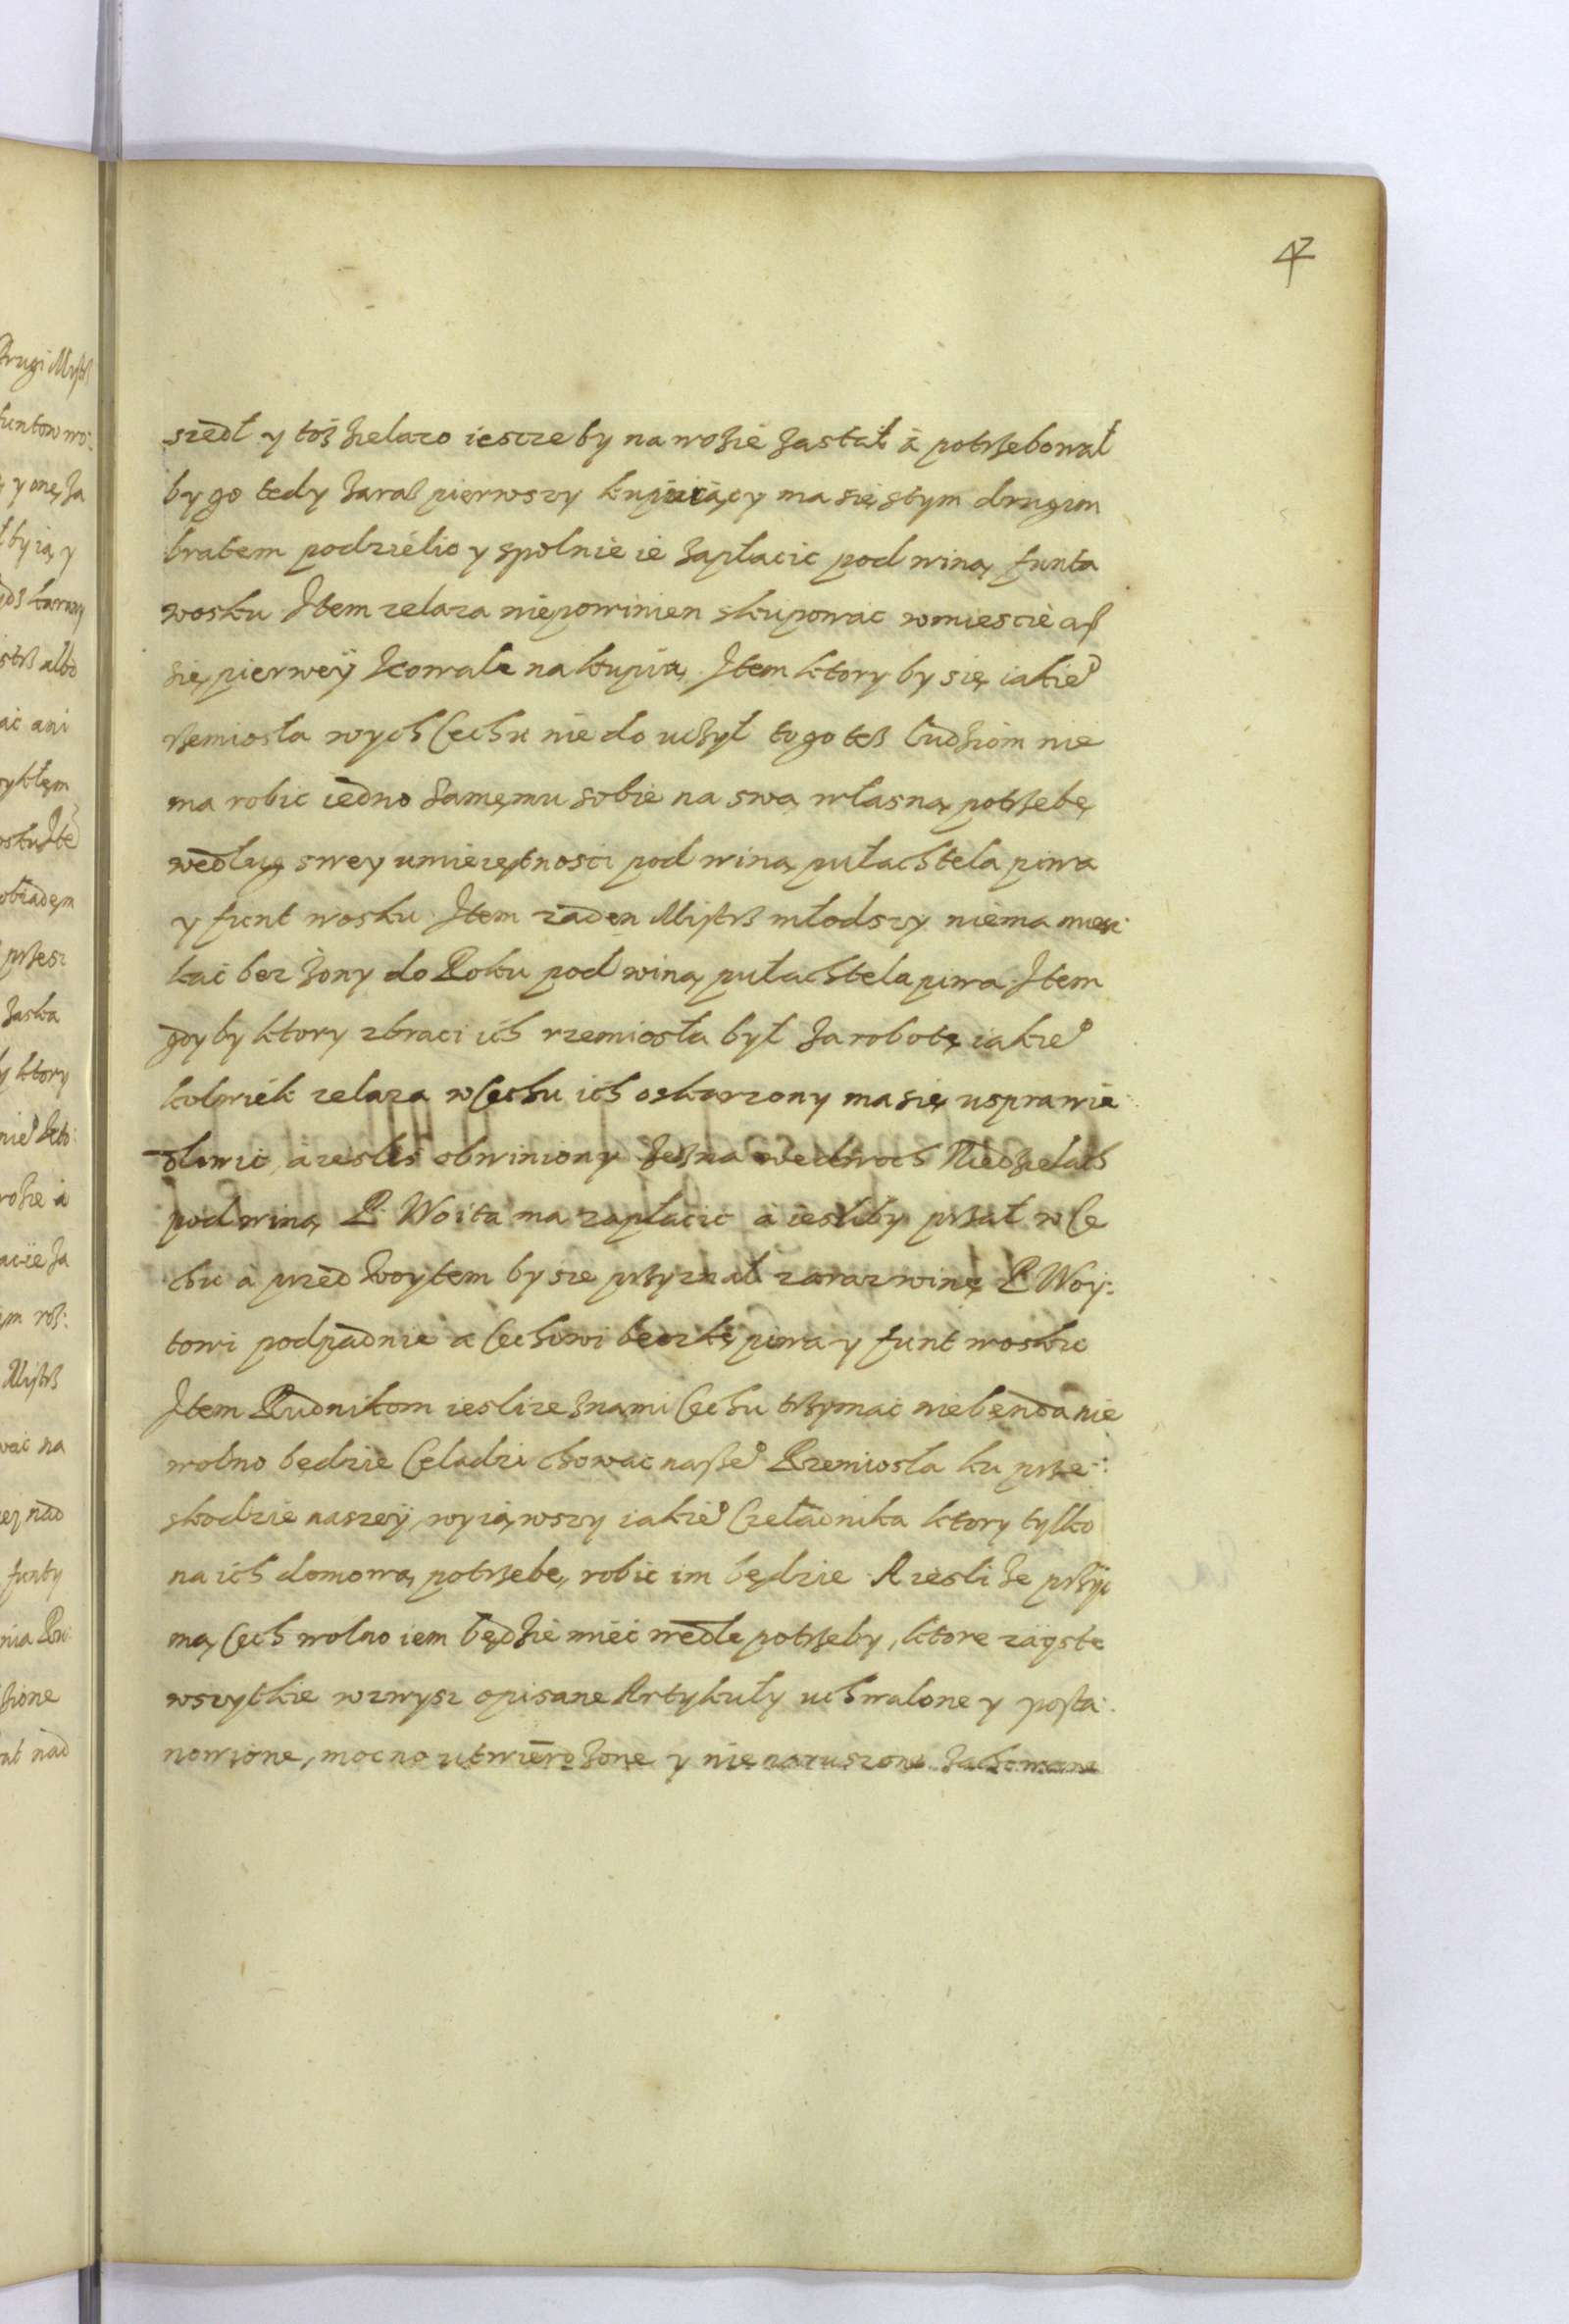 47
szedł y tosz zelazo iescze by na wozie zastał a potrzebował
by go tedy zaraz pierwszy kupuiący ma się stym drugim
bratem podzielic y spolnie ie zapłacic pod winą funta
wosku Item zelaza niepowinien skupowac wmiescie asz
się pierwey Kowale nakupią. Item ktory by się iakieo
rzemiosła wych Cechu nie do uczył tego tesz ludziom nie
ma robic iedno samęmu sobie na swą własną potrzebę
według swey umieięętnosci pod winą pułachtela piwa
y funt wosku. Item żaden Mistrz młodszy niema mież:
kać bez żony do Roku pod winą pułachtela piwa. Item
gdy by ktory zbraci ich rzemiosła był za robotę iakieo
kolwiek zelaza wCechu ich oskarzony masię usprawie:
dliwic, a iesliś obwiniony zezna wedwoch Niedzielach
pod winą P. Woita ma zapłacic a iesliby przał wCe
chu a przed Woytem by sie przyznał zaraz winę P Woy:
towi podpadnie a Cechowi beczkę piwa y funt wosku
Item Rudnikom iesli ze znami Cechu trzymac niebęnda nie
wolno będzie Celadzi chowac naszeo Rzemiosła ku prze:
skodzie naszey, wyiąwszy iakieo Czeładnika ktory tylko
na ich domową potrzebę, robic im będzie. A iesli ze przyi
mą Cech wolno iem będzie mieć wedle potrzeby, ktore zaęste
wszytkie wzwysz opisane Artykuły uchwalone y posta:
nowione, mocno utwierdzone y nienaruszone zachowane